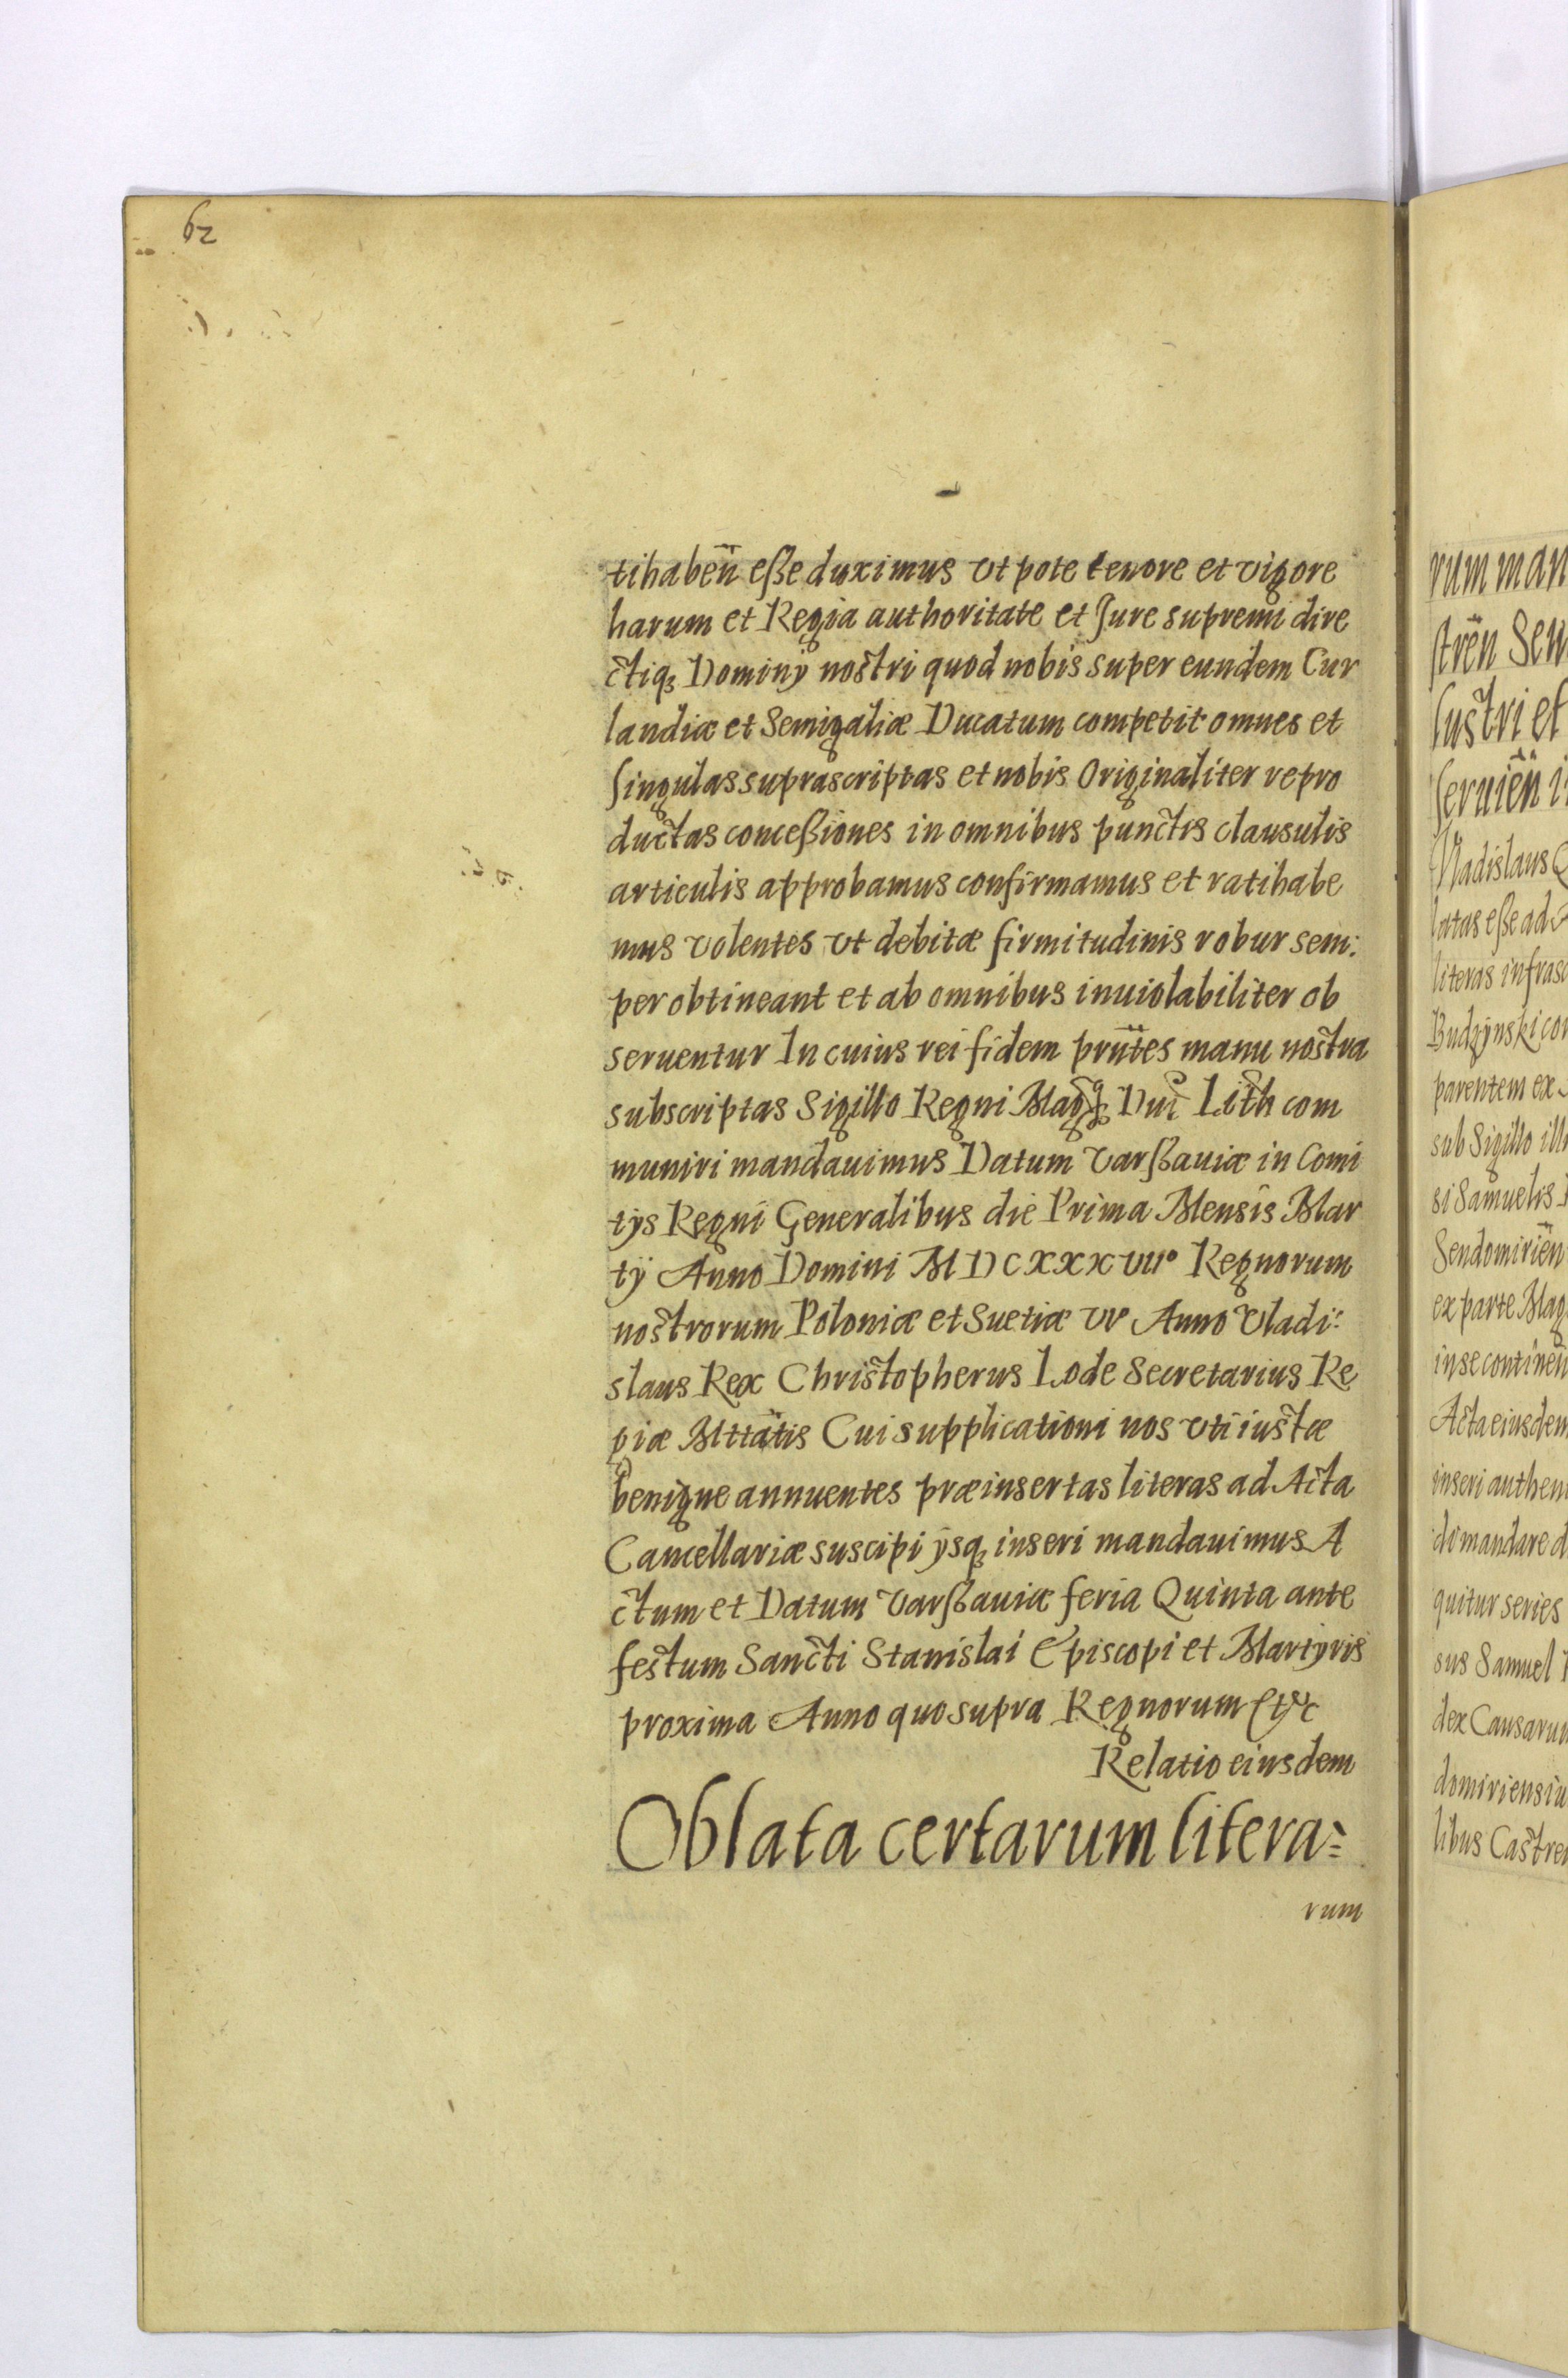 62
tihabēn eße duximus vt pote tenore et vigore
harum et Regia authoritate et Jure supremi dire
ctiqꝫ Dominÿ nostri quod nobis super eundem Cur
landiæ et Semigaliæ Ducatum competit omnes et
singulas suprascriptas et nobis Originaliter repro
ductas conceßiones in omnibus punctis clausulis
articulis approbamus confirmamus et ratihabe
mus volentes vt debitæ firmitudinis robur sem:
per obtineant et ab omnibus inuiolabiliter ob
seruentur In cuius rei fidem prñtes manu nostra
subscriptas Sigillo Regni Magqꝫ Duc Lith com
muniri mandauimus Datum Varßauiæ in Comi
tÿs Regni Generalibus die Prima Mensis Mar
tÿ Anno Domini MDCXXXVII° Regnorum
nostrorum Poloniæ et Suetiæ VI° Anno Vladi:
slaus Rex Christopherus Lode Secretarius Re
giæ Mttãtis Cui supplicationi nos vti iustæ
benigne annuentes præinsertas literas ad Acta
Cancellariæ suscipi ÿsqꝫ inseri mandauimus A
ctum et Datum Varßauiæ feria Quinta ante
festum Sancti Stanislai Episcopi et Martyris
proxima Anno quo supra Regnorum Etc
Relatio eiusdem
Oblata certarum litera=
rum
rum man
strēn Sen
lustri et
seruiēn i
Vladislaus
latas eße ad
literas infrasc
Budzÿnski co
parentem ex
sub Sigillo ill
si Samuelis
Sendomiriēn
ex parte Mag
in se continēn
Acta eiusdem
inseri authen
di mandare d
quitur series
sus Samuel
dex Causaru
domiriensiu
libus Castre